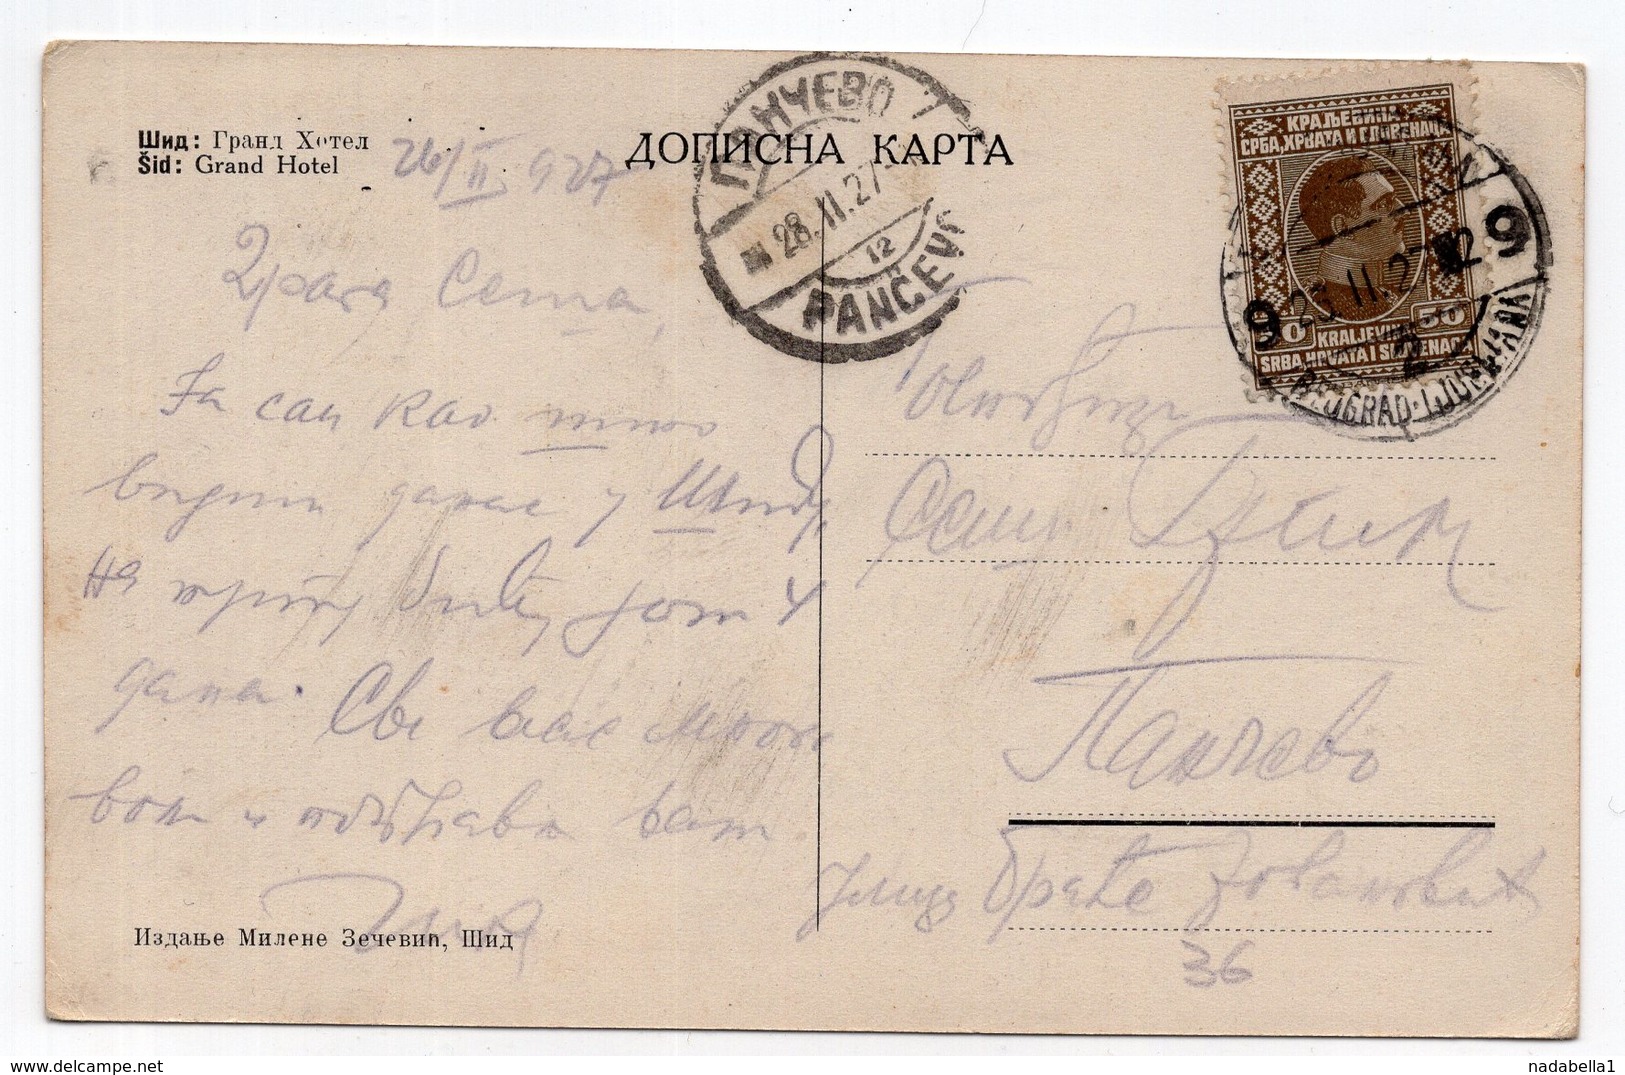 Шид: Гранд Хотел
Šid: Grand Hotel
26/II 927
ДОПИСНА КАРТА
ПАНЧЕВО
28.II.27
12
PANČEVO
КРАЉЕВИНА
СРБА, ХРВАТА И СЛОВЕНАЦА
50 50
KRALJEVINA
SRBA, HRVATA I SLOVENAC
9 9
II.27
BEOGRAD-LJUBLJANA
Драга Сеша,
Ја сам као што
видиш данас у Шиду,
на путу бићу још 4
дана. Све вас много
воли и поздравља ваш
Сеши
Панчево
Улица Браће Јовановића
36
Издање Милене Зечевић, Шид
nadabella1